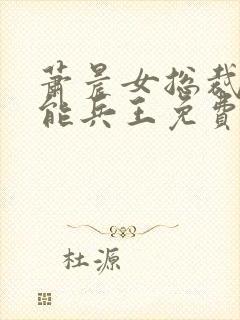 萧晨女总裁
能兵王免費
杜源